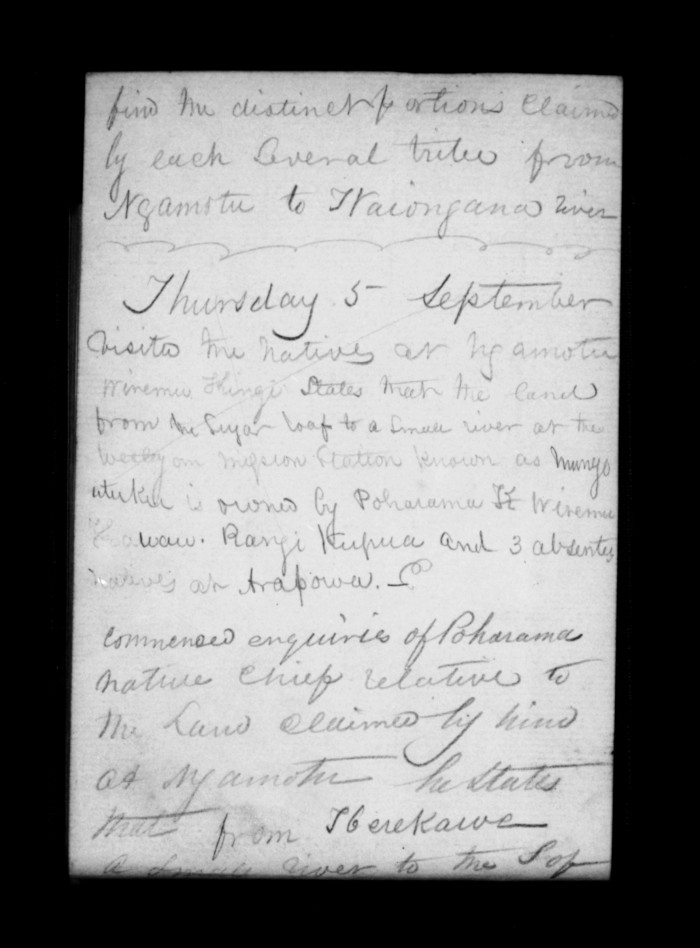 find the distinct portions Claimed
by each Several tribe from
Ngamotu to Waiongana river
Thursday 5 September
Visited the Natives at Ngamotu
Wiremu Kingi States that the land
from the Sugar loaf to a Small river at the
Weslyan mission Station known as Mungo
utuku is owned by Poharama Wiremu
Rangi Kupua and 3 absentes
natives at Arapowa.
commenced enquiries of Poharama
native Chief relative to
the Land Claimed by him
at Ngamotu he States
that from Herekawe
a Small river to the